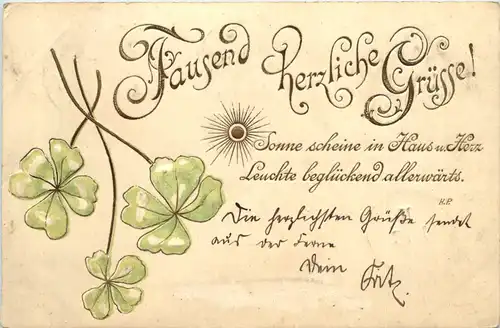 Tausend herzliche Grüsse!
Sonne scheine in Haus u. Herz
Leuchte beglückend allerwärts.
H.P.
Die herzlichsten Grüße sendet
aus der Ferne
Dein Fritz.